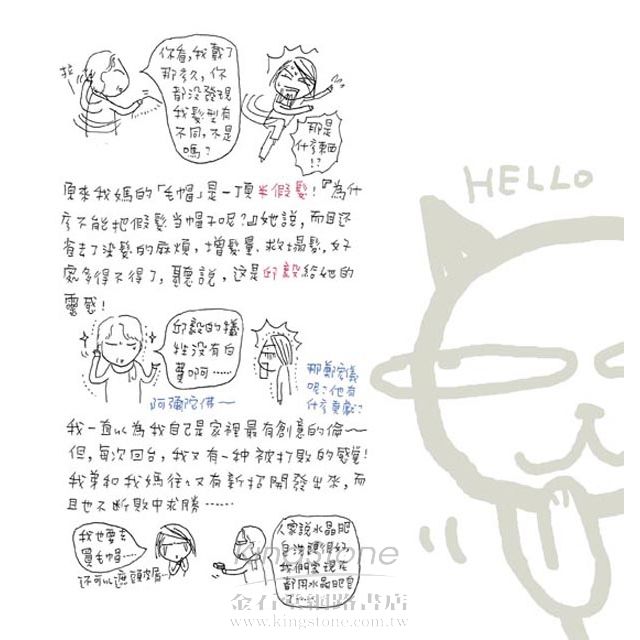 拉
你看,我戴了
那麼久,你
都沒發現
我髮型有
不同,不是
嗎?
那是
什麼東西
!?
HELLO
原來我媽的「毛帽」是一頂半假髮!『為什
麼不能把假髮當帽子呢?』她說,而且还
省去了染髮的麻煩,增髮量.救塌髮,好
處多得不得了,聽說,这是邱毅給她的
靈感!
邱毅的犧
牲沒有白
費啊……
阿彌陀佛~
呢?他有
什麼貢獻?
我一直以為我自己是家裡最有創意的倫~~
但,每次回台,我又有一种被打敗的感覺!
我弟和我媽往往又有新招開發出來,而
且也不断敗中求勝……
我也要去
買毛帽……
还可以遮頭皮屑…
人家說水晶肥
皂洗頭很好,
我們家現在
都用水晶肥皂
Kingstone
金石堂網路書店
www.kingstone.com.tw